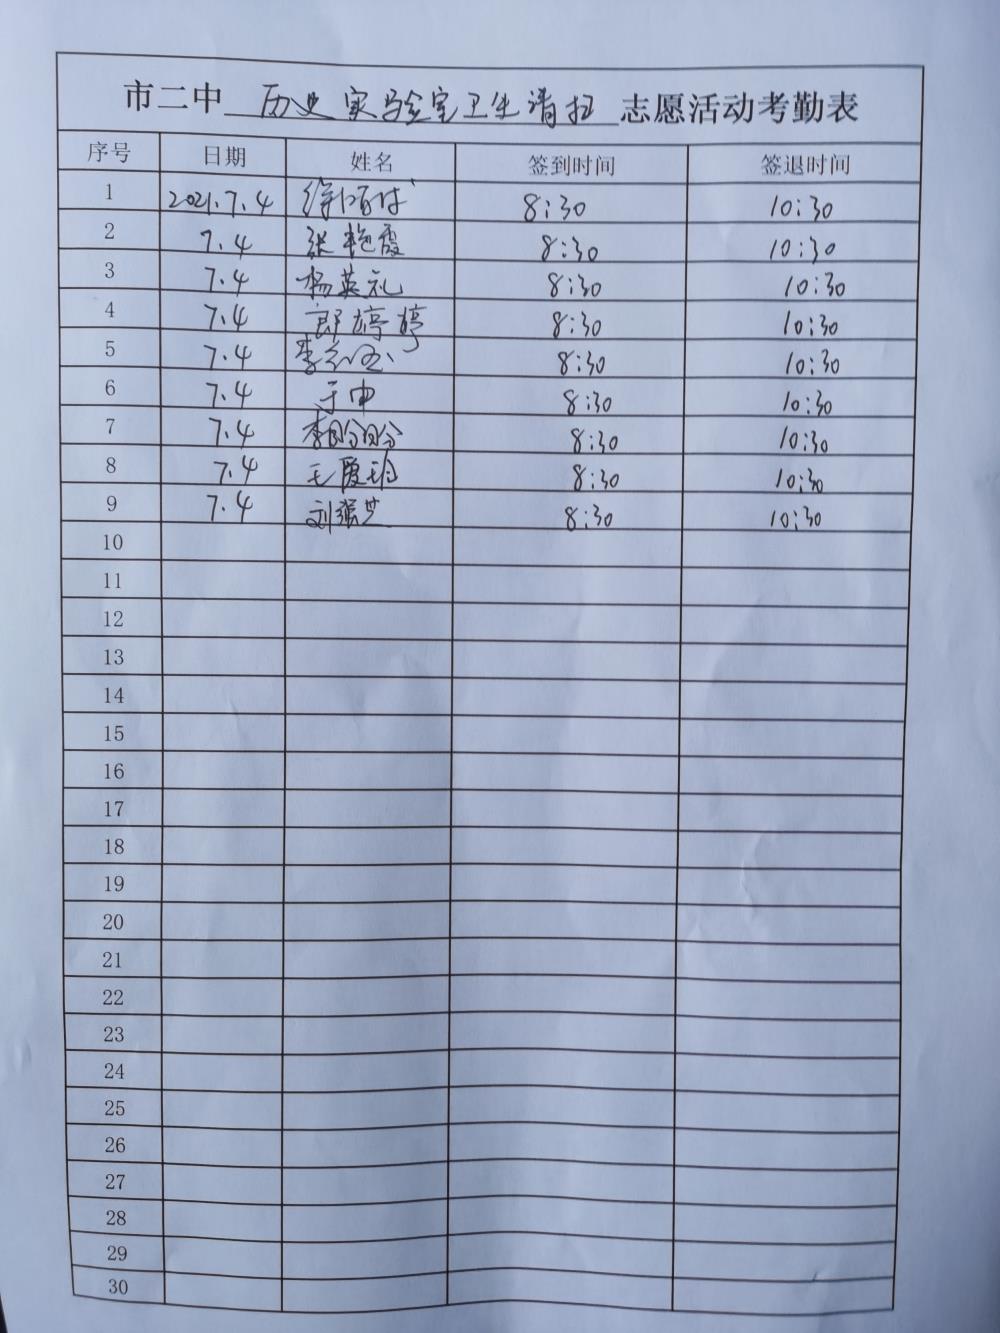 市二中 历史实验室卫生清扫 志愿活动考勤表
序号 日期 姓名 签到时间 签退时间
1 2021.7.4 8:30 10:30
2 7.4 张艳霞 8:30 10:30
3 7.4 杨英礼 8:30 10:30
4 7.4 郎婷婷 8:30 10:30
5 7.4 李 8:30 10:30
6 7.4 于申 8:30 10:30
7 7.4 李盼盼 8:30 10:30
8 7.4 王爱玲 8:30 10:30
9 7.4 刘强芝 8:30 10:30
10
11
12
13
14
15
16
17
18
19
20
21
22
23
24
25
26
27
28
29
30